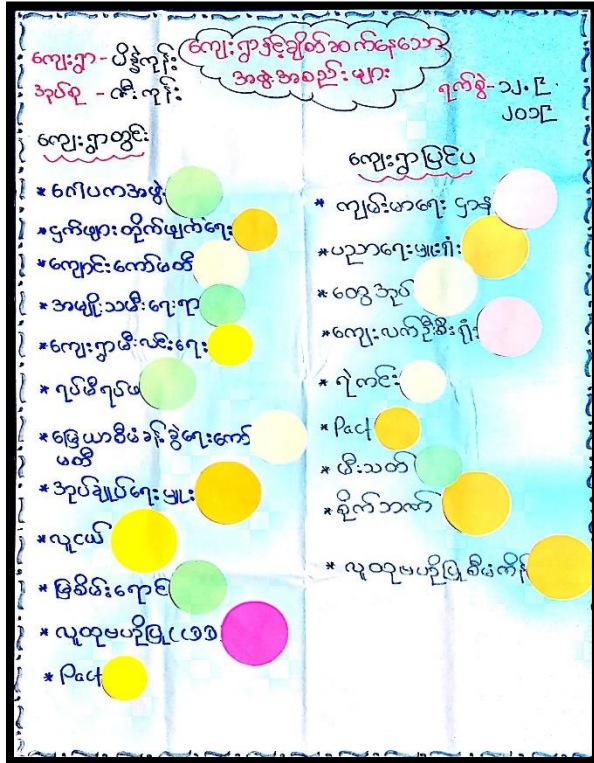 ကျေးရွာနှင့်ချိတ်ဆက်နေသော
အဖွဲ့အစည်းများ
ကျေးရွာ - ပိန္နဲကုန်း
အုပ်စု - ဇီးကုန်း
ရက်စွဲ - ၁၂.၉.
၂၀၁၉
ကျေးရွာတွင်း
* ဂေါပကအဖွဲ့
* ငှက်ဖျားတိုက်ဖျက်ရေး
* ကျောင်းကော်မတီ
* အမျိုးသမီးရေးရာ
* ကျေးရွာမီးလင်းရေး
* ရပ်မိရပ်ဖ
* မြေယာစီမံခန့်ခွဲရေးကော်
မတီ
* အုပ်ချုပ်ရေးမှူး
* လူငယ်
* မြစိမ်းရောင်
* လူထုဗဟိုပြု (CDD)
* Pact
ကျေးရွာပြင်ပ
* ကျမ်းမာရေးဌာန
* ပညာရေးမှူးရုံး
* ထွေအုပ်
* ကျေးလက်ဦးစီးရုံး
* ရဲကင်း
* Pact
* မီးသတ်
* စိုက်ဘဏ်
* လူထုဗဟိုပြုစီမံကိန်း